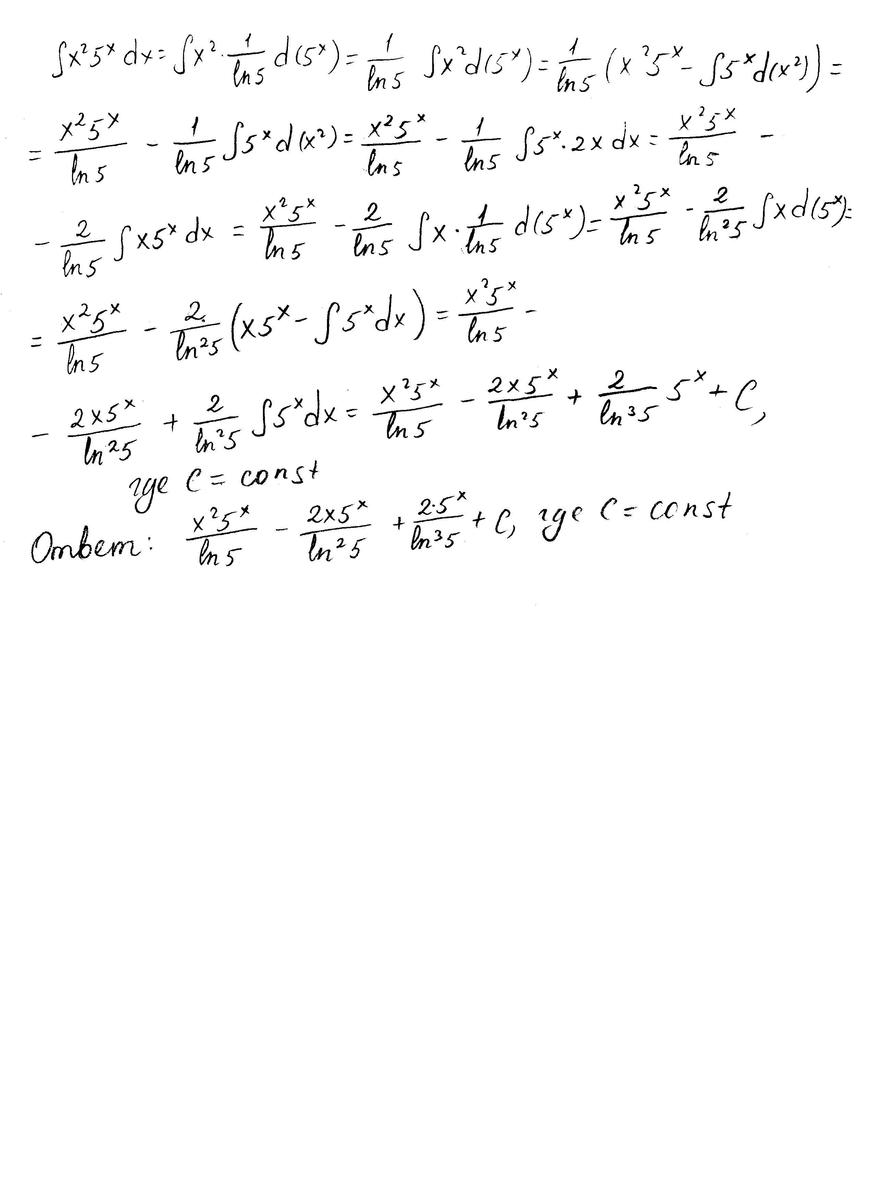 ∫x²5ˣ dx = ∫x² · 1/ln5 d(5ˣ) = 1/ln5 ∫x²d(5ˣ) = 1/ln5 (x²5ˣ - ∫5ˣd(x²)) =
= x²5ˣ/ln5 - 1/ln5 ∫5ˣd(x²) = x²5ˣ/ln5 - 1/ln5 ∫5ˣ·2x dx = x²5ˣ/ln5 -
- 2/ln5 ∫x5ˣ dx = x²5ˣ/ln5 - 2/ln5 ∫x · 1/ln5 d(5ˣ) = x²5ˣ/ln5 - 2/ln²5 ∫xd(5ˣ) =
= x²5ˣ/ln5 - 2/ln²5 (x5ˣ - ∫5ˣdx) = x²5ˣ/ln5 -
- 2x5ˣ/ln²5 + 2/ln²5 ∫5ˣdx = x²5ˣ/ln5 - 2x5ˣ/ln²5 + 2/ln³5 5ˣ + C,
где C = const
Ответ: x²5ˣ/ln5 - 2x5ˣ/ln²5 + 2·5ˣ/ln³5 + C, где C = const